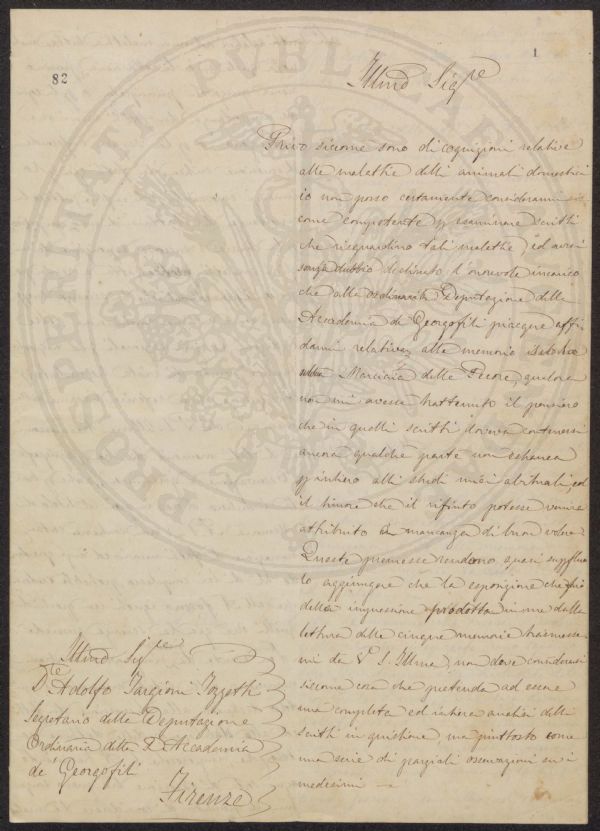 82
1
Illmo Sigre
Privo siccome sono di cognizioni relative
alle malathe delli animali domestici
io non posso certamente considerarmi
come competente p esaminare scritti
che risguardino tali malathe, ed avrei
senza dubbio declinato l'onorevole incarico
che alla Ordinaria Deputazione della
Accademia de Georgofili piacque affi
darmi relativa alle memorie
sulla Marciaia delle Pecore, qualora
non mi avesse trattenuto il pensiero
che in quelli scritti dovea contenersi
ancora qualche parte non estranea
p intiero alli studi miei abituali, ed
il timore che il rifiuto potesse venire
attribuito a mancanza di buon volere
Queste premesse rendono quasi superfluo
lo aggiungere che la esposizione che
della impressione prodotta in me dalla
lettura delle cinque memorie trasmesse
mi da V. S. Illma, non deve considerarsi
siccome cosa che pretenda ad essere
una completa ed intiera analisi delli
scritti in quistione ma piuttosto come
una serie di parziali osservazioni su i
medesimi
Illmo Sigre
Dte Adolfo Targioni Tozzetti
Segretario della Deputazione
Ordinaria della R. Accademia
de' Georgofili
Firenze
PROSPERITATI PUBLICAE